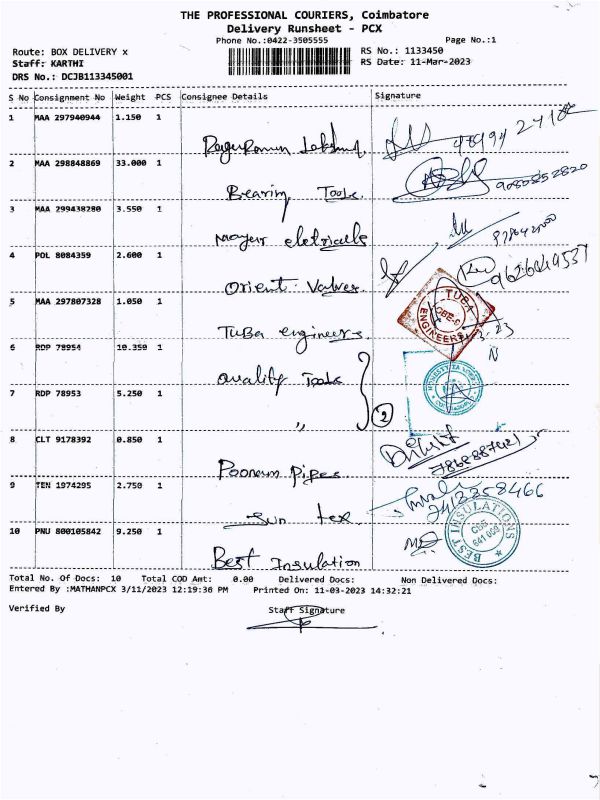 THE PROFESSIONAL COURIERS, Coimbatore
Delivery Runsheet - PCX
Phone No.:0422-3505555
Page No.:1
Route: BOX DELIVERY x
RS No.: 1133450
Staff: KARTHI
RS Date: 11-Mar-2023
DRS No.: DCJB113345001
S No Consignment No Weight PCS Consignee Details Signature
1 MAA 297940944 1.150 1
2 MAA 298848869 33.000 1
Bearing Tools.
9080852820
3 MAA 299438280 3.550 1
4 POL 8084359 2.600 1
Orient Valves
9626049537
5 MAA 297807328 1.050 1
Tuba engineers
TUBA ENGINEERS CBE-9
6 RDP 78954 10.350 1
Quality Tools
7 RDP 78953 5.250 1
"
2
8 CLT 9178392 0.850 1
Poonam Pipes
9 TEN 1974295 2.750 1
Sun tex
10 PNU 800105842 9.250 1
Best Insulation
BEST INSULATIONS CBE
Total No. Of Docs: 10 Total COD Amt: 0.00 Delivered Docs: Non Delivered Docs:
Entered By :MATHANPCX 3/11/2023 12:19:36 PM Printed On: 11-03-2023 14:32:21
Verified By
Staff Signature